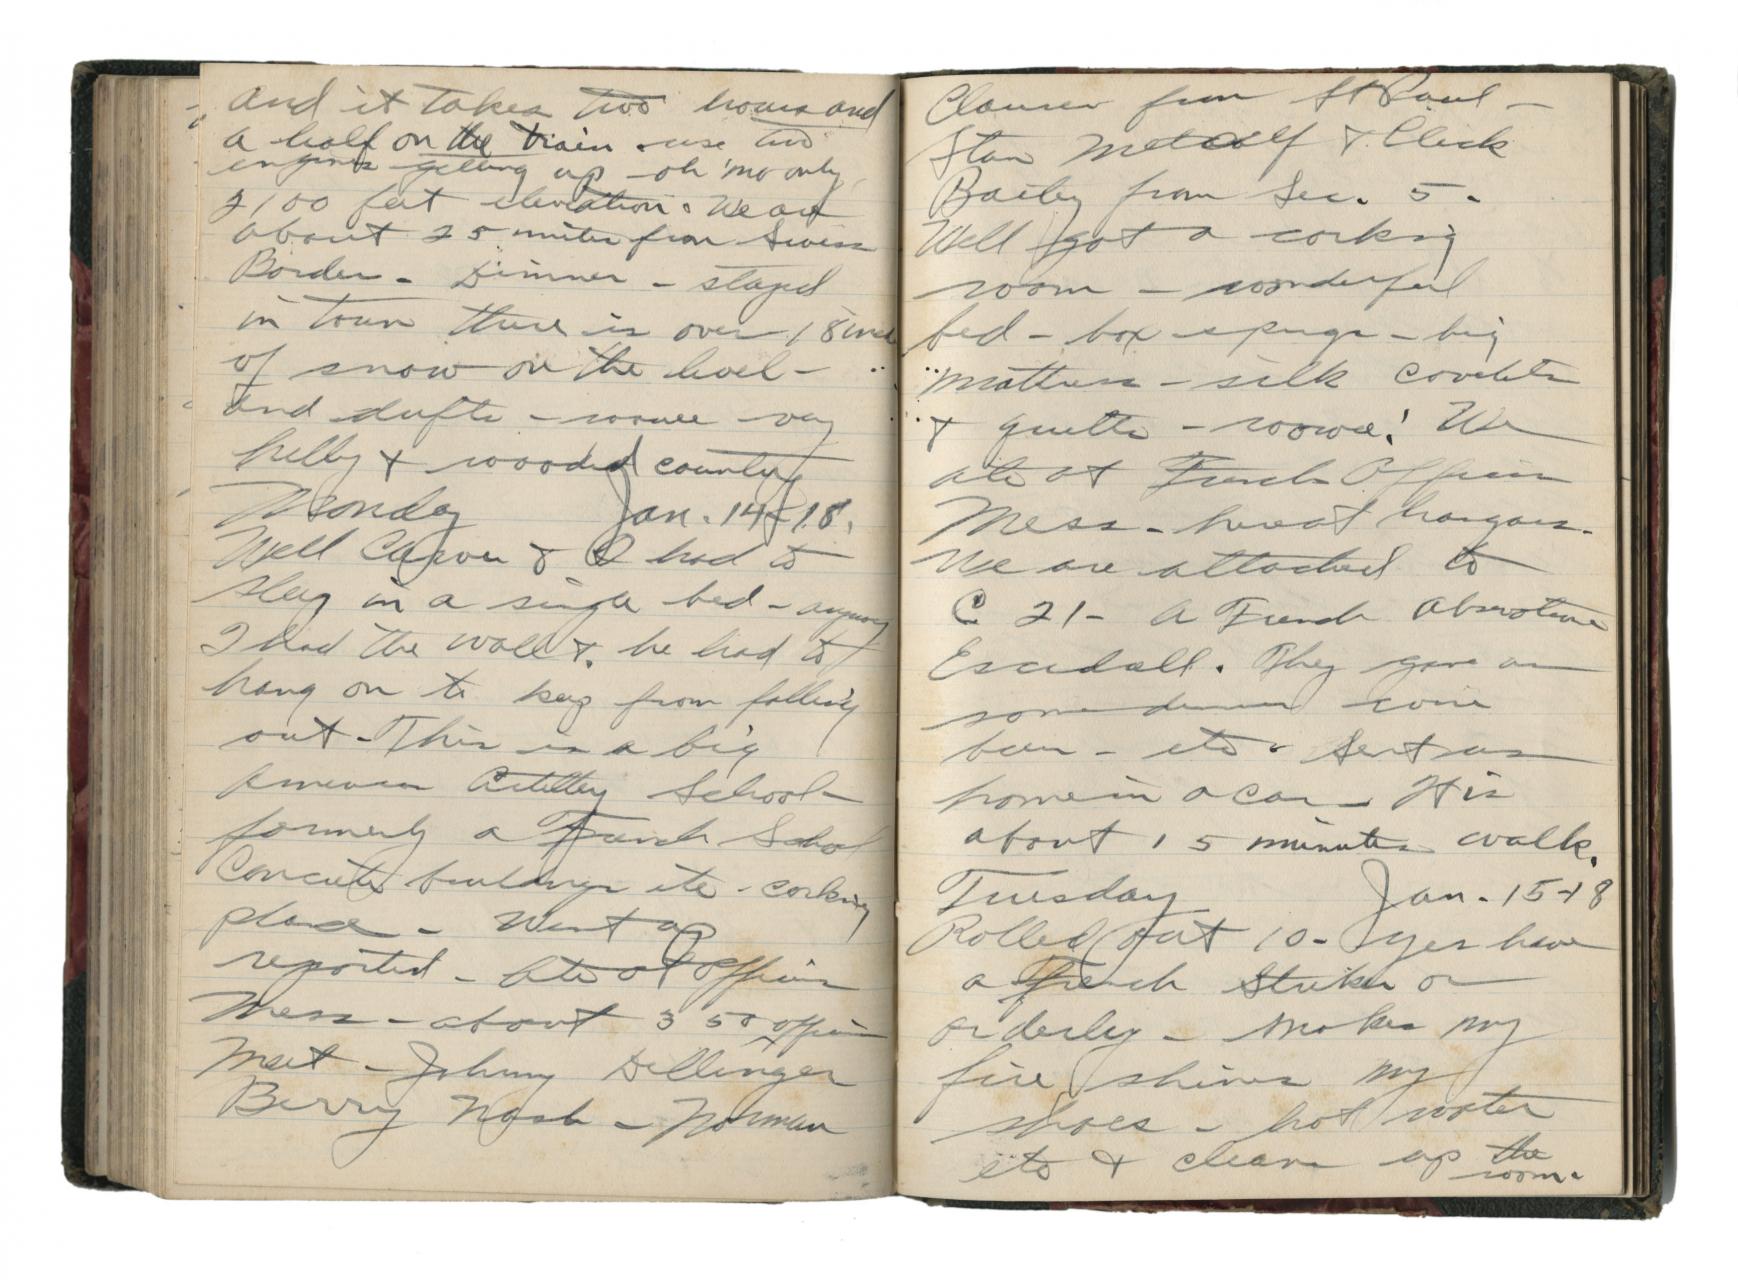 and it takes two hours and
a half on the train. use two
engines getting up - oh 'mo only
2100 feet elevation. We are
about 25 miles from Swiss
Border - Dinner - stayed
in town there is over 18 inch
of snow on the level -
and drifts - very
hilly & wooded country
Monday Jan. 14-18.
Well Carver & I had to
sleep in a single bed - anyway
I had the wall & he had to
hang on to keep from falling
out - This is a big
American Artillery School -
formerly a French School
Concrete buildings etc - corking
place - Went up
reported - ate at Officers
Mess - about 350 officers
Meet - Johnny Dillinger
Berry Nash - Norman
from St Paul -
Stan Metcalf & Click
Bailey from Sec. 5 -
Well got a corking
room - wonderful
bed - box springs - big
mattress - silk coverlets
& quilts - wowie! We
ate at French Officers
Mess - hangars.
We are attached to
C 21 - A French Observation
Escadrill. They gave us
some dinner wine
beer - etc. Sent us
home in a car - It is
about 15 minutes walk.
Tuesday Jan. 15-18
Rolled out 10 - yes have
a French Striker or
orderly - makes my
fire shines my
shoes - hot water
etc & cleans up the
room.